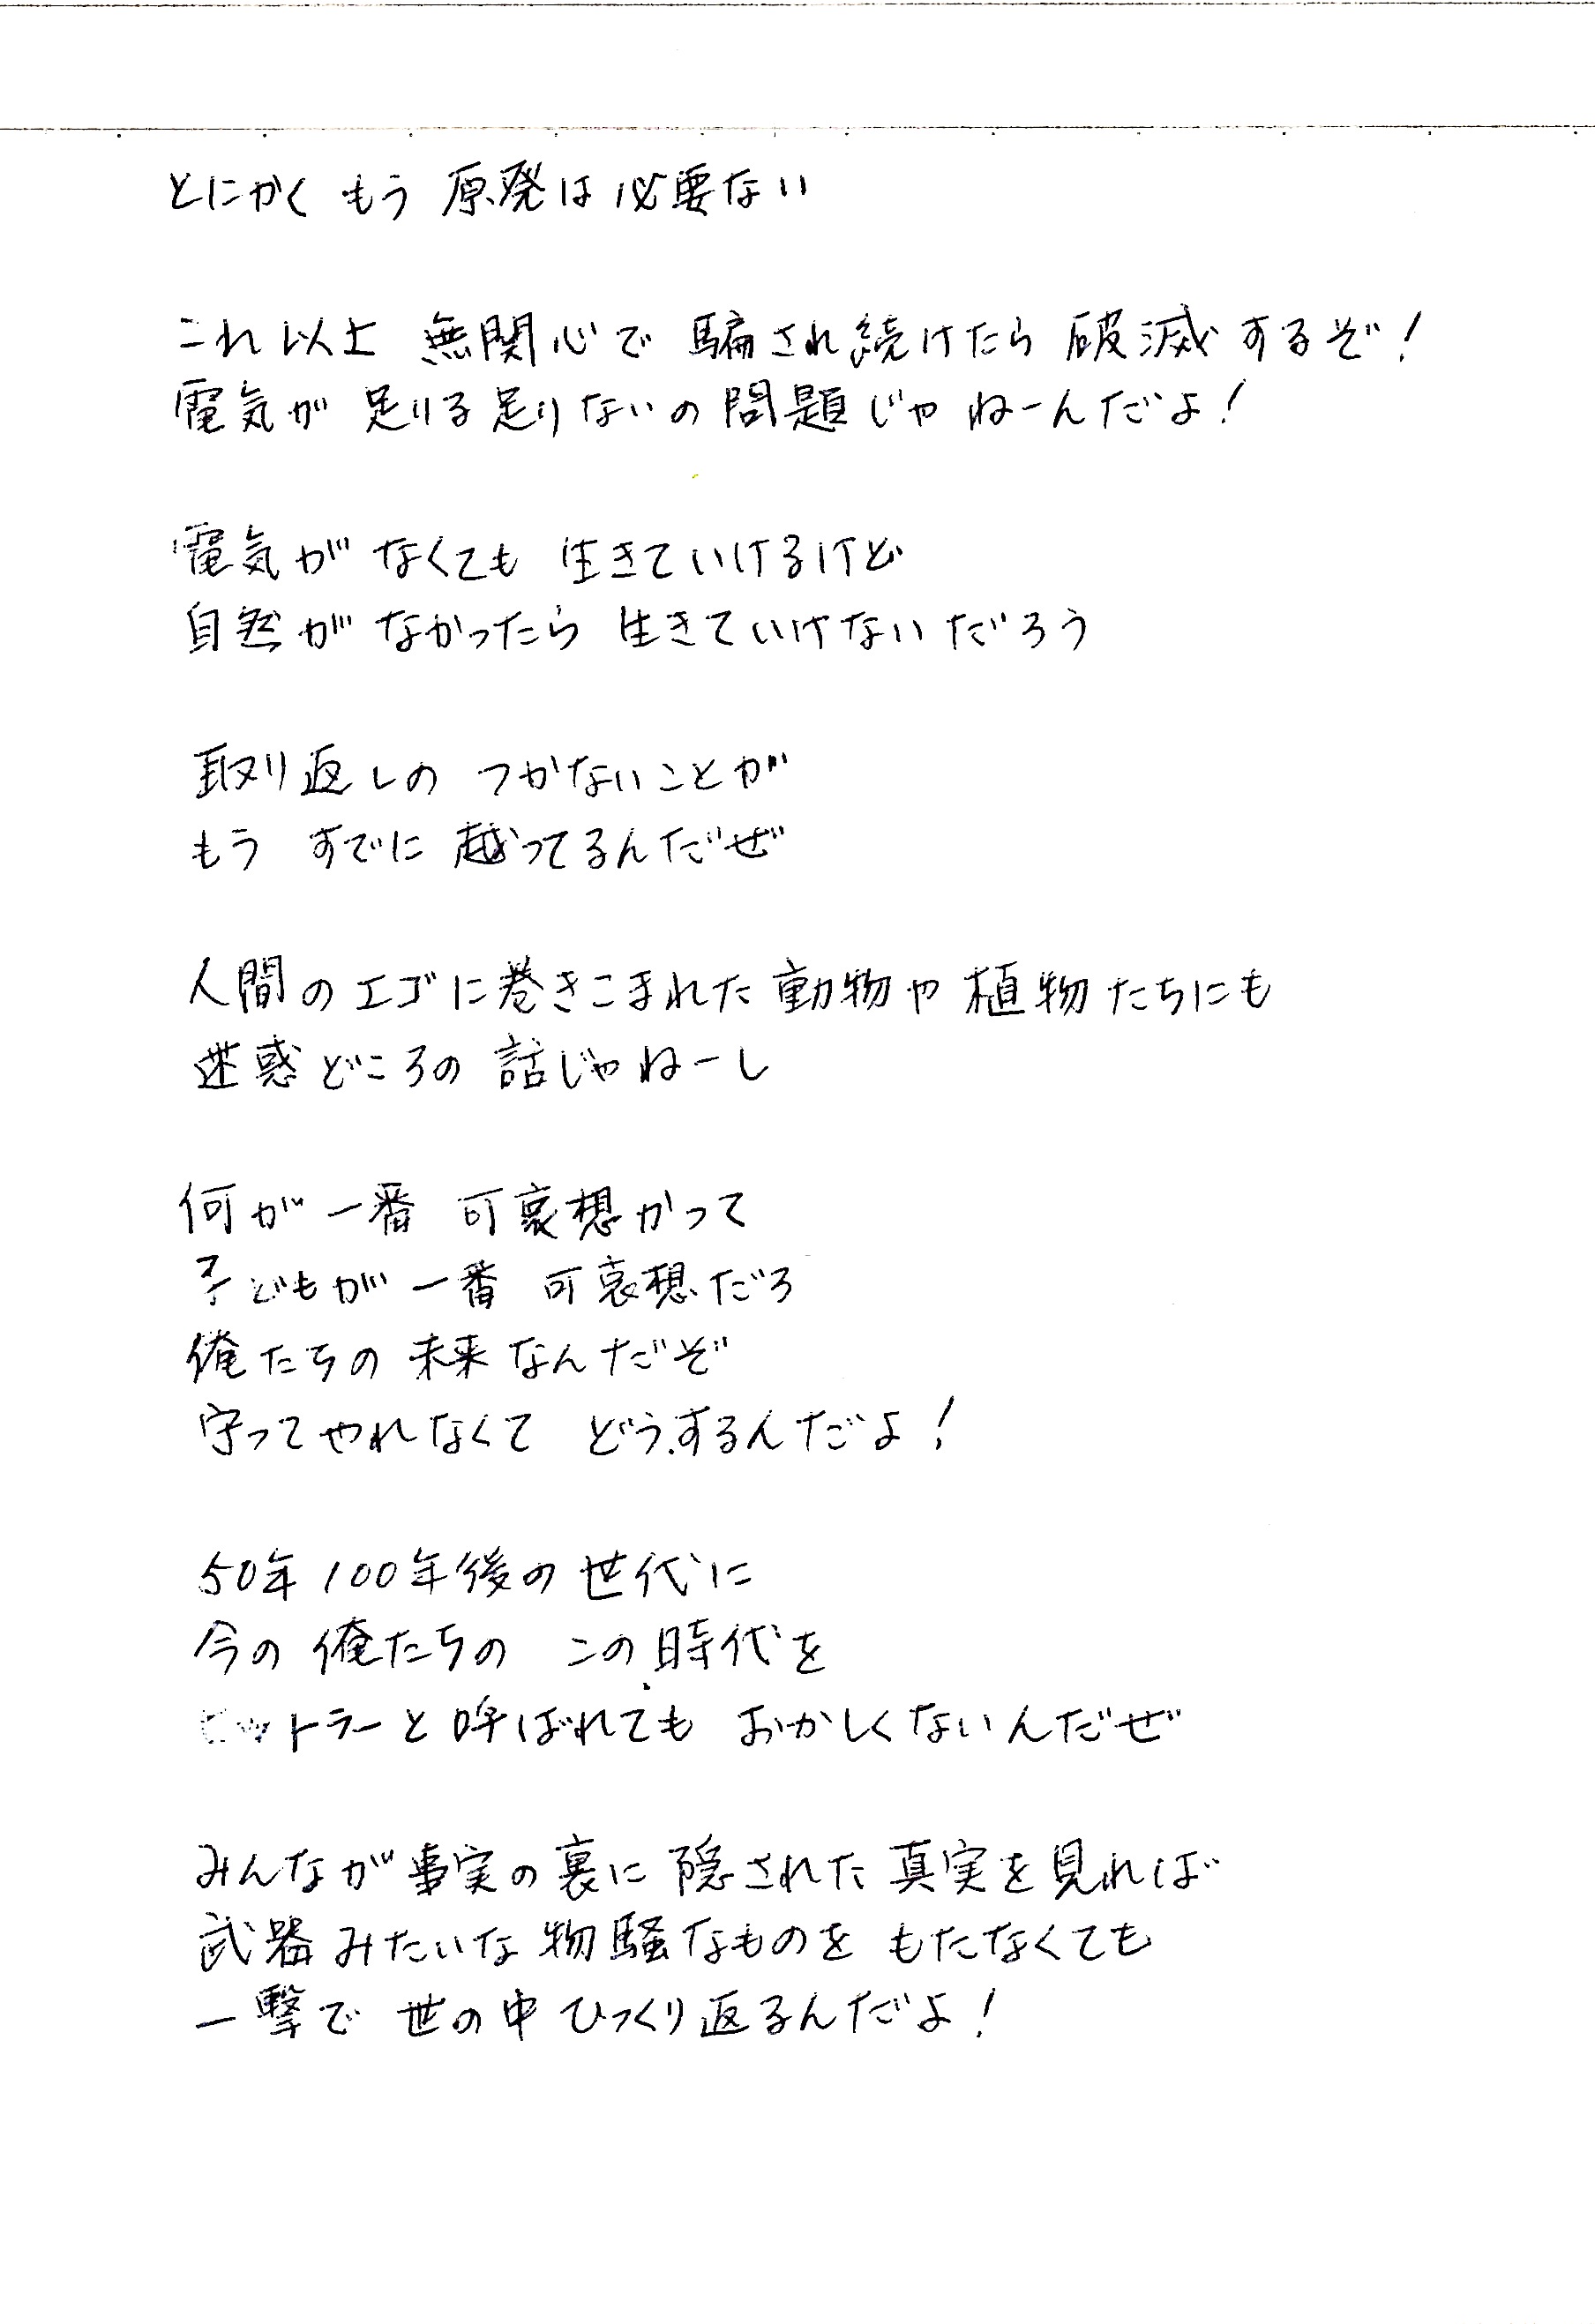 とにかく もう 原発は必要ない
これ以上 無関心で 騙され続けたら 破滅するぞ!
電気が 足りる足りないの問題じゃねーんだよ!
電気が なくても 生きていけるけど
自然が なかったら 生きていけないだろう
取り返しの つかないことが
もう すでに 越ってるんだぜ
人間のエゴに巻きこまれた動物や植物たちにも
迷惑どころの 話じゃねーし
何が一番 可哀想かって
子どもが一番 可哀想だろ
俺たちの 未来なんだぞ
守ってやれなくて どうするんだよ!
50年100年後の世代に
今の俺たちの この時代を
ヒットラーと呼ばれても おかしくないんだぜ
みんなが事実の裏に隠された真実を見れば
武器みたいな物騒なものを もたなくても
一撃で 世の中ひっくり返るんだよ!